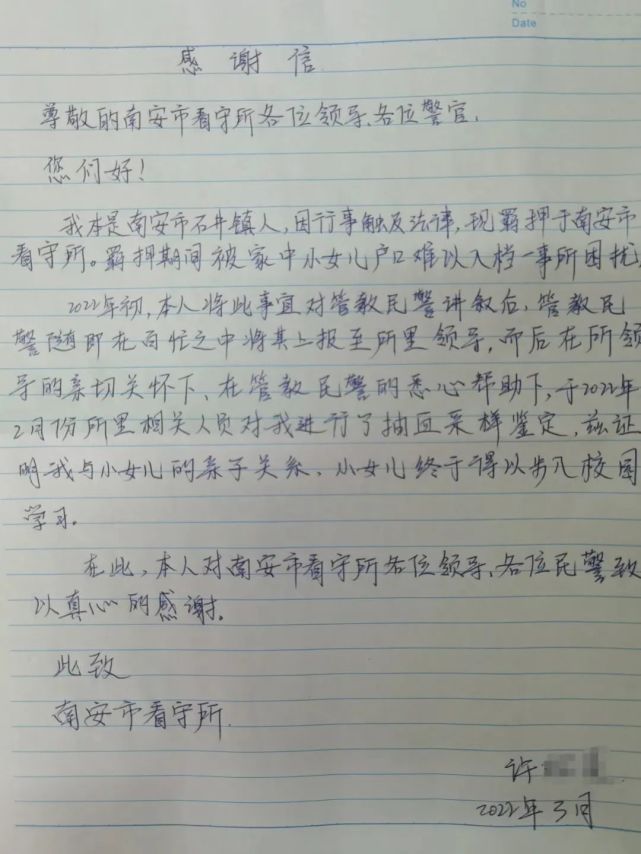 No
Date
感谢信
尊敬的南安市看守所各位领导、各位警官,
您们好!
我本是南安市石井镇人,因行事触及法律,现羁押于南安市
看守所。羁押期间被家中小女儿户口难以入档一事所困扰,
2022年初,本人将此事宜对管教民警讲叙后,管教民
警随即在百忙之中将其上报至所里领导,而后在所领
导的亲切关怀下、在管教民警的悉心帮助下,于2022年
2月份所里相关人员对我进行了抽血采样鉴定,兹证
明我与小女儿的亲子关系、小女儿终于得以步入校园
学习。
在此,本人对南安市看守所各位领导、各位民警致
以真心的感谢。
此致
南安市看守所.
许
2022年3月